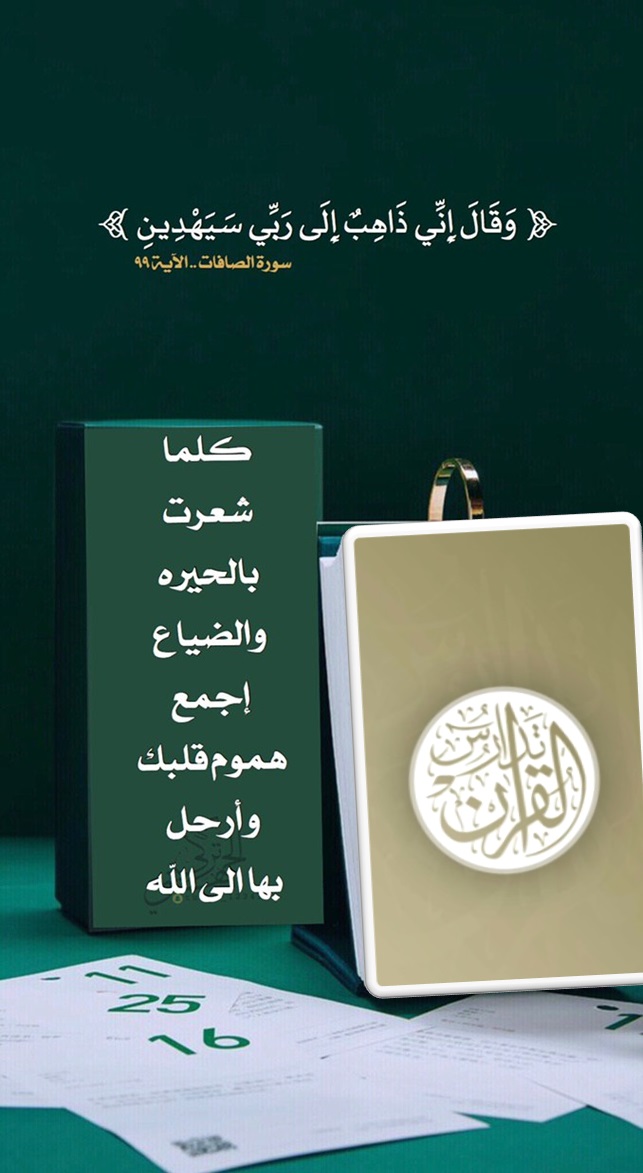 ﴿ وَقَالَ إِنِّي ذَاهِبٌ إِلَى رَبِّي سَيَهْدِينِ ﴾
سورة الصافات .. الآية ٩٩
كلما
شعرت
بالحيره
والضياع
إجمع
هموم قلبك
وأرحل
بها الى الله
تدارس
القرآن
11
25
16